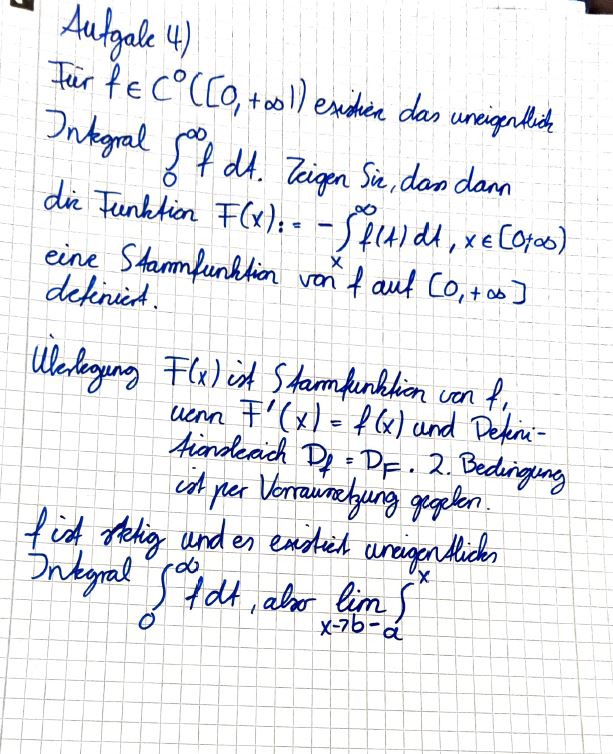 Aufgabe 4)
Für f ∈ C⁰([0, +∞)) existiere das uneigentlich
Integral ∫₀^∞ f dt. Zeigen Sie, dass dann
die Funktion F(x) := - ∫ₓ^∞ f(t) dt, x ∈ [0, +∞)
eine Stammfunktion von f auf [0, +∞]
definiert.
Überlegung F(x) ist Stammfunktion von f,
wenn F'(x) = f(x) und Defini-
tionsbereich D_f = D_F. 2. Bedingung
ist per Vorraussetzung gegeben.
f ist stetig und es existiert uneigentliches
Integral ∫₀^∞ f dt, also lim_{x→b-} ∫ₐ^x